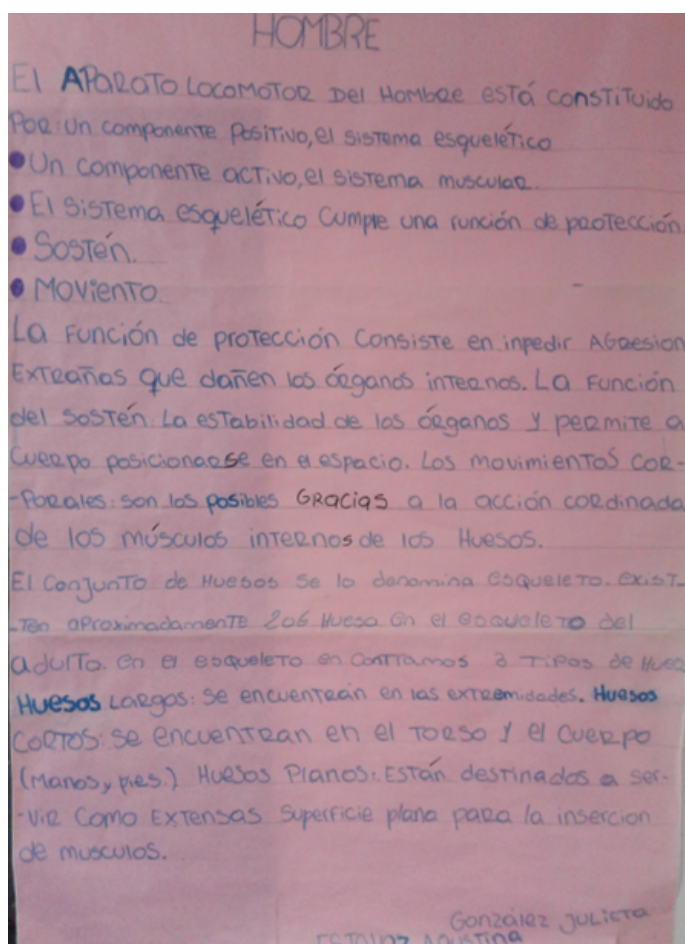 HOMBRE
El APARATO LOCOMOTOR Del HOMBRE está constituido
Por: Un componente Positivo, el sistema esquelético
• Un componente activo, el sistema muscular.
• El sistema esquelético Cumple una función de protección.
• Sostén.
• Moviento.
La Función de protección Consiste en inpedir AGresion
Extrañas que dañen los órganos internos. La Función
del Sostén. La estabilidad de los órganos y permite a
Cuerpo posicionarse en el espacio. Los movimientos cor-
-Porales: son los posibles Gracias a la acción cordinada
de los músculos internos de los Huesos.
El Conjunto de Huesos se lo denomina esqueleto. exist-
-ten aproximadamente 206 Hueso en el esqueleto del
adulto. en el esqueleto en contramos 3 Tipos de Hueso
Huesos Largos: se encuentran en las extremidades. Huesos
Cortos: se encuentran en el torso y el cuerpo
(Manos, y pies.) Huesos Planos: Están destinados a ser-
-vir como Extensas Superficie plana para la insercion
de musculos.
González Julieta
Agustina